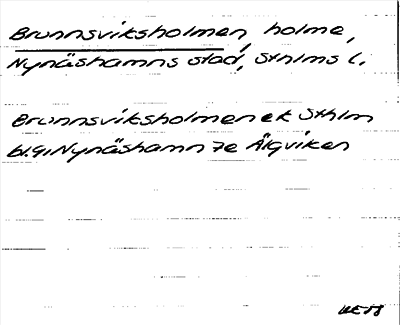 Brunnsviksholmen, holme,
Nynäshamns stad, Sthlms l.
Brunnsviksholmen ek Sthlm
bl. 91 Nynäshamn 7e Älgviken